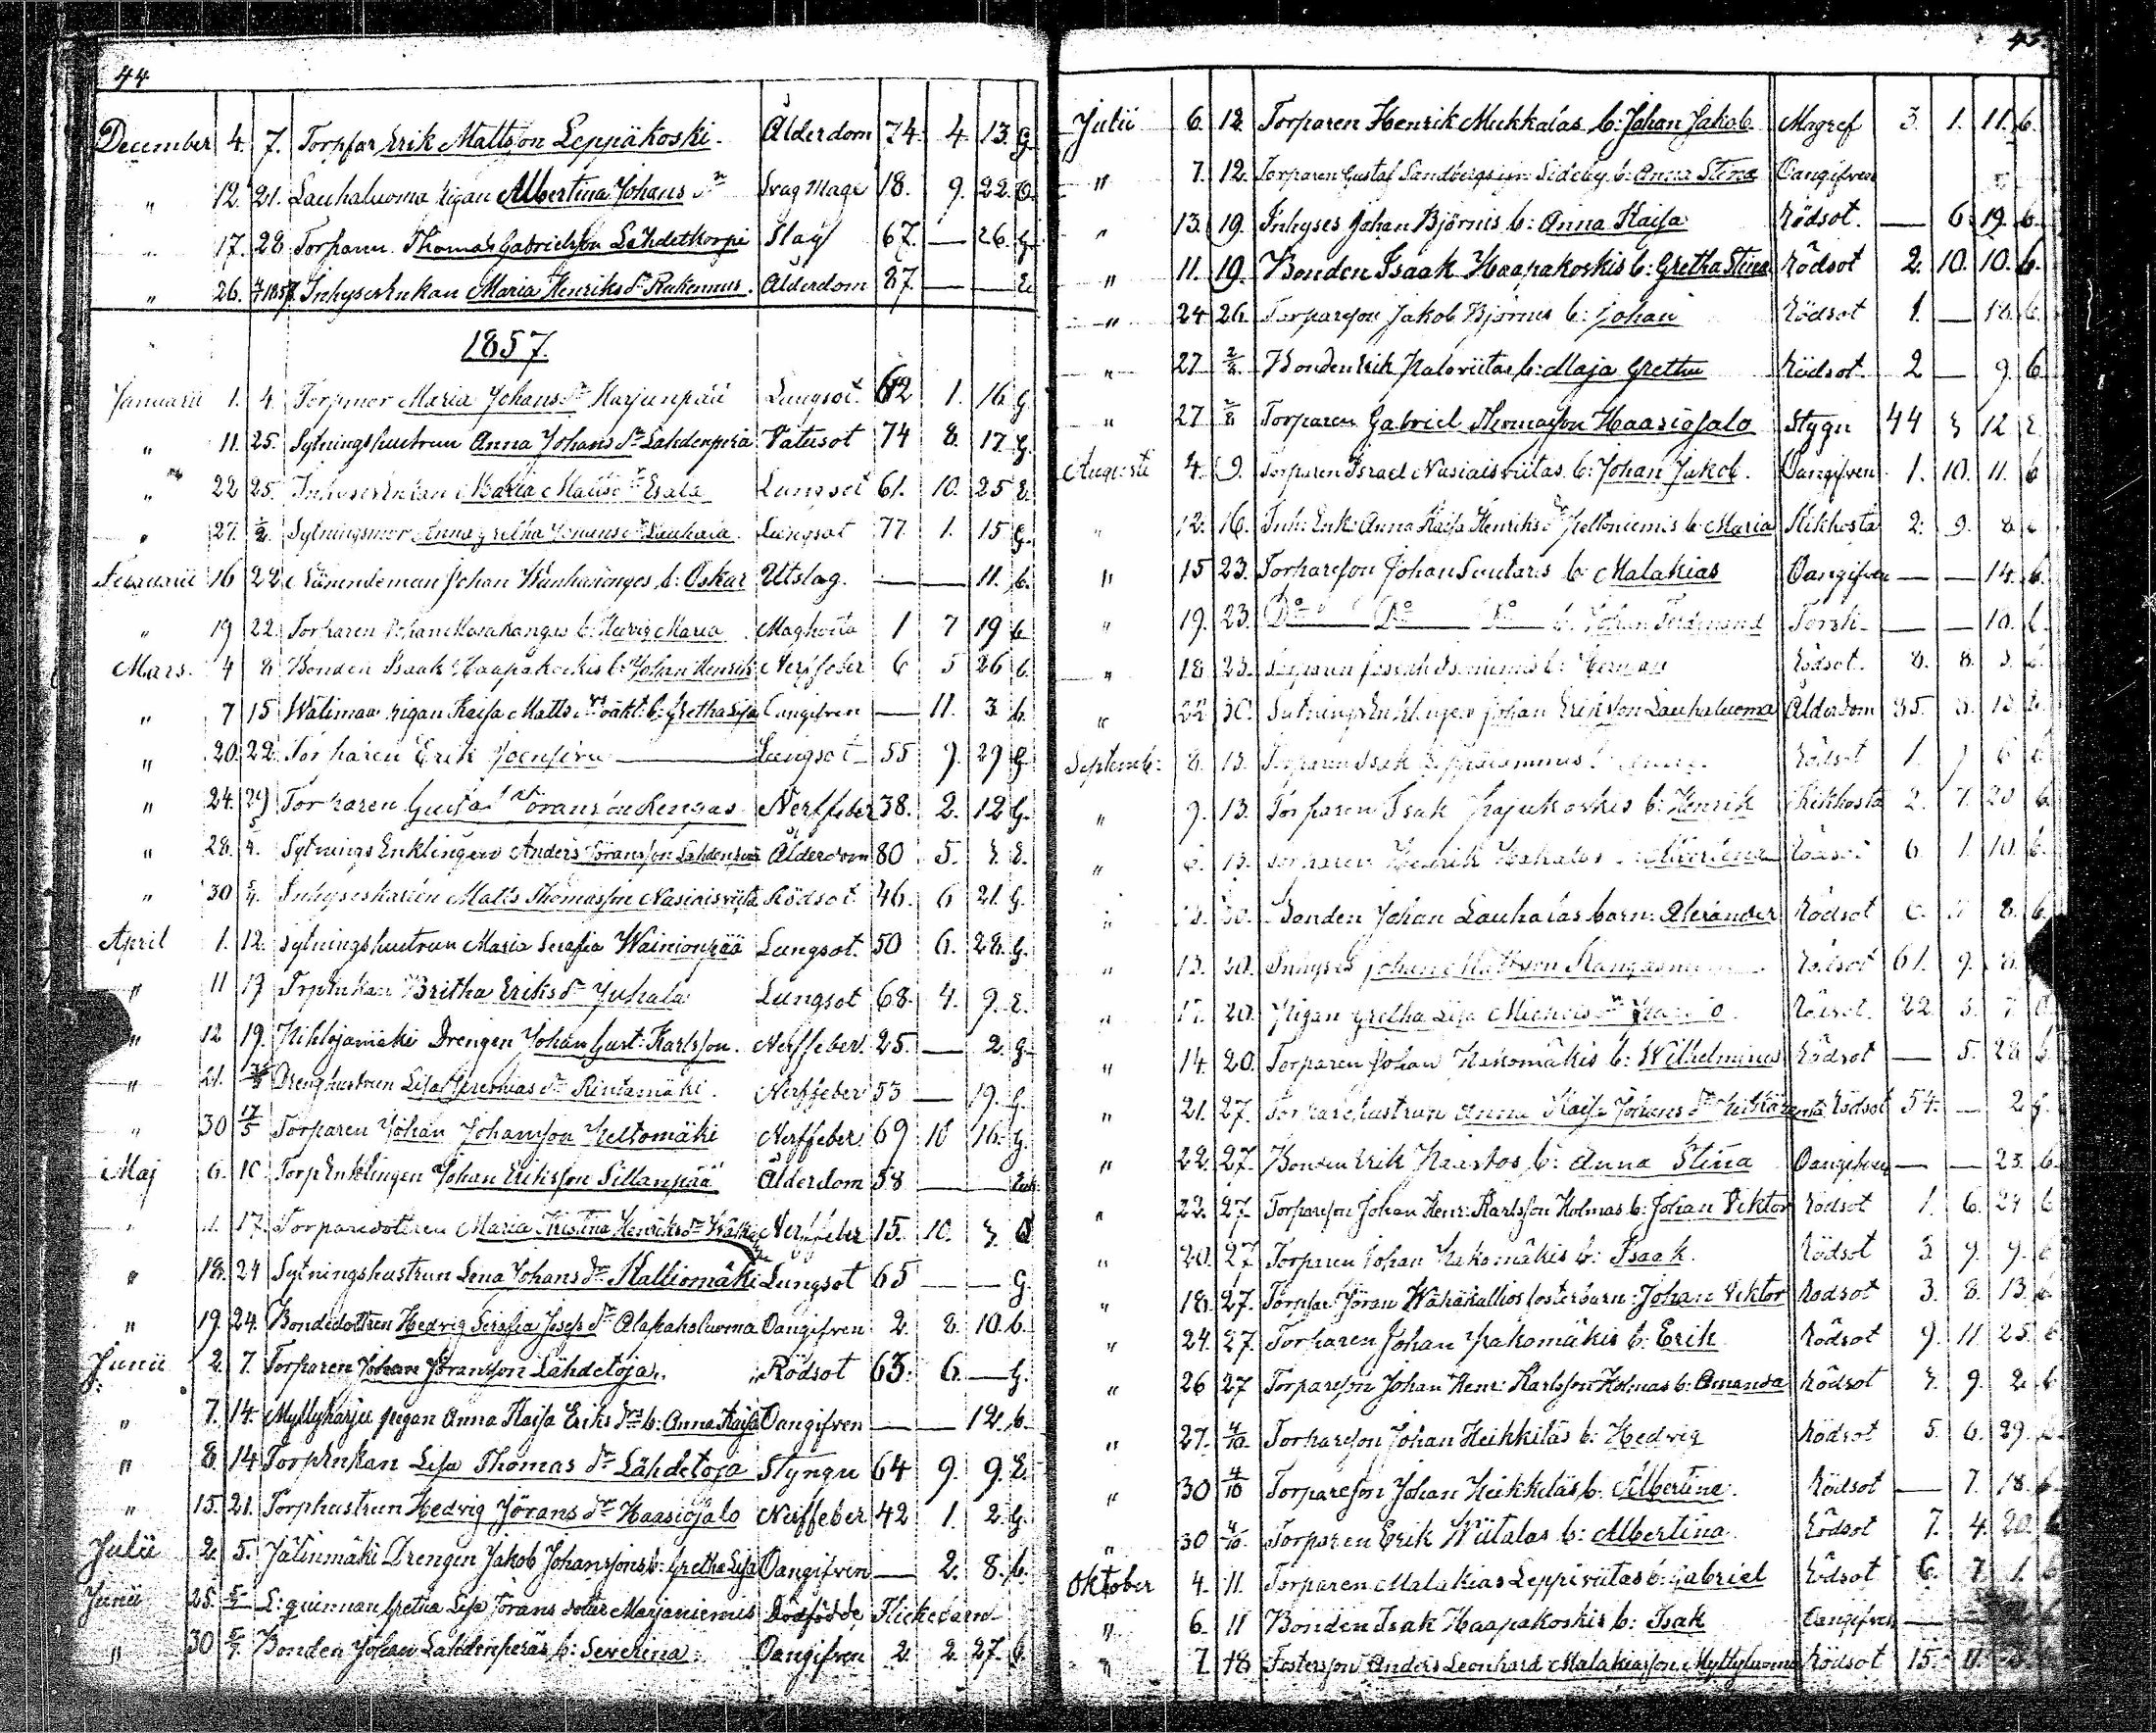 44
December 4. 7. Torpfar Erik Mattsson Leppäkoski. Ålderdom 74. 4. 13. G.
" 12. 21. Lauhaluoma pigan Albertina Johans dr Svag Mage 18. 9. 22. O.
" 17. 28. Torparen Thomas Gabrielsson Lähdetkorpi Slag 67. — 26. G.
" 26. Inhyses Enkan Maria Henriks dr Rakennus. Ålderdom 87. — — E.
1857.
Januarii 1. 4. Torpmor Maria Johans dr Harjunpää Lungsot. 62 1. 16 G
" 11. 25. Sytningshustrun Anna Johans dr Lahdenperä Vatusot 74 8. 17 G.
" 22 25. Inhyses Enkan Maria Matts dr Esala Lungsot 61. 10. 25 E.
" 27. 1/2. Sytningsmor Anna Gretha dr Lauhala. Lungsot 77. 1. 15 G.
Februarii 16 22 Johan b: Oskar Utslag. — — 11. b.
" 19 22. Torparen Johan b: Maria Maghosta 1 7 19 b
Mars. 4 8 Bonden Isaak Haapakoskis b: Johan Henrik Nerffeber 6 5 26 b.
" 7 15 Wälimaa pigan Kaisa Matts drs oäkt: b: Gretha Lisa Oangifven — 11. 3. b.
" 20. 22. Torparen Erik Joensuu — Lungsot 55 9. 29 G.
" 24. 29 Torparen Gustaf Göransson Rengas Nerffeber 38. 2. 12 G.
" 28. Sytnings Enklingen Anders Göransson Lahdenperä Ålderdom 80 5. 3. E.
" 30 5/4. Inhyseskarlen Matts Thomasson Nasiaisviita Rödsot 46. 6 21. G.
April 1. 12. Sytningshustrun Maria Serafia Wainionpää Lungsot. 50 6. 28. G.
" 11 19 Trp Enkan Britha Eriks dr Juhala Lungsot 68. 4. 9. E.
" 12 19. Drengen Johan Gust: Karlsson. Nerffeber. 25. — 2. G.
" 21. Dreng hustrun Lisa Jeremias dr Rintamäki. Nerffeber 53 — 19. G.
" 30 17/5 Torparen Johan Johansson Keltomäki Nerffeber 69 10 16. G.
Maj 6. 10. Torp Enklingen Johan Eriksson Sillanpää Ålderdom 58 — — Enk.
" 17. Torparedottren Maria Kristina Henriks dr Nerffeber 15. 10. 3. O
" 18. 24 Sytningshustrun Lena Johans dr Kalliomäki Lungsot 65 — — G.
" 19. 24. Bondedottren Hedvig Serafia Josefs dr Alakahsluoma Oangifven 2. 8. 10. b.
Junii 2. 7. Torparen Johan Göransson Lähdetoja. Rödsot 63. 6. — G.
" 7. 14. Myllyharju pigan Anna Kaisa Eriks drs b: Anna Kaisa Oangifven — — 12. b.
" 8. 14 Torp Enkan Lisa Thomas dr Lähdetoja Styngn 64 9. 9. E.
" 15. 21. Torphustrun Hedvig Jörans dr Haasiosalo Nerffeber 42 1. 2. G.
Julii 2. 5. Jälinmäki Drengen Jakob Johanssons b: Gretha Lisa Oangifven — 2. 8. b.
Junii 25. 5/7 L: quinnan Gretha Lisa Jörans dotter Marjaniemis Dödfödde Flickebarn
" 30 5/7. Bonden Johan Lahdenperäs b: Severina. Oangifven 2. 2. 27. b.
45.
Julii 6. 12 Torparen Henrik Mukkalas b: Johan Jakob Magref 3. 1. 11. b.
" 7. 12. Torparen Gustaf Sandbergs Sideby b: Anna Stina Oangifven
" 13. 19. Inhyses Johan Björnis b: Anna Kaisa Rödsot. — 6. 19. b.
" 11. 19. Bonden Isaak Haapakoskis b: Gretha Stina Rödsot 2. 10. 10. b.
" 24 26. Torpareson Jakob Björnis b: Johan Rödsot 1. — 18. b.
" 27 2/8. Bonden Erik b: Maja Gretha Rödsot 2 — 9. b
" 27 2/8 Torparen Gabriel Thomasson Haasiosalo Stygn 44 3 12 E.
Augusti 4. 9. Torparen Israel Nasiaisviitas b: Johan Jakob. Oangifven 1. 10. 11. b
" 12. 16. Inh: Enk: Anna Kaisa Henriks drs Keltoniemis b: Maria Kikhosta 2. 9. 8.
" 15 23. Torpareson Johan Suutaris b: Malakias Oangifven — — 14. b.
" 19. 23. Do — Do — Do — b: Johan Ferdinand Torsk. — — 10. b.
" 18 23. b: Herman Rödsot. 8. 8. 3.
" 22. 30. Sytnings Enklingen Johan Eriksson Lauhaluoma Ålderdom 85. 3. 12
Septemb: 8. 13. Torparen Isak Rödsot 1. 6
" 9. 13. Torparen Isak Kajukoskis b: Henrik Kikhosta 2. 7. 20 b.
" 13. Torparen Henrik b: Albertina Rödsot 6. 1. 10. b.
" Bonden Johan Lauhalas barn: Alexander Rödsot 8. b.
" 13. 20. Inhyses Johan Mattsson Rödsot 61. 9. 8.
" 17. 20. Pigan Gretha Lisa Michels dr Rödsot. 22. 3. 7.
" 14. 20. Torparen Johan Hakomäkis b: Wilhelmina Rödsot — 5. 28 b.
" 21. 27. Torparehustrun Anna Kaisa Johans dr Rödsot 54. — 2 G.
" 22. 27. Bonden Erik Haastos b: Anna Stina Oangifven — — 23. b.
" 22. 27. Torpareson Johan Henr: Karlsson Holmas b: Johan Viktor Rödsot 1. 6. 24 b
" 20. 27 Torparen Johan Hakomäkis b: Isaak. Rödsot 3 9. 9.
" 18. 27. Torpfar Jöran Wähäkallios fosterbarn: Johan Viktor Rödsot 3. 8. 13. b
" 24. 27. Torparen Johan Hakomäkis b: Erik Rödsot 9. 11. 25.
" 26 27 Torpareson Johan Henr: Karlsson Holmas b: Amanda Rödsot 3. 9. 2. b
" 27. 4/10. Torpareson Johan Heikkiläs b: Hedvig Rödsot 5. 6. 29.
" 30 4/10 Torpareson Johan Heikkiläs b: Albertina. Rödsot — 7. 18. b.
" 30 4/10. Torparen Erik Wiitalas b: Albertina Rödsot 7. 4. 20.
Oktober 4. 11. Torparen Malakias Leppiviitas b: Gabriel Rödsot 6. 7 1.
" 6. 11 Bonden Isak Haapakoskis b: Isak Oangifven —
" 7. 18 Fosterson Anders Leonhard Malakiasson Myllyluoma Rödsot 15. 11.